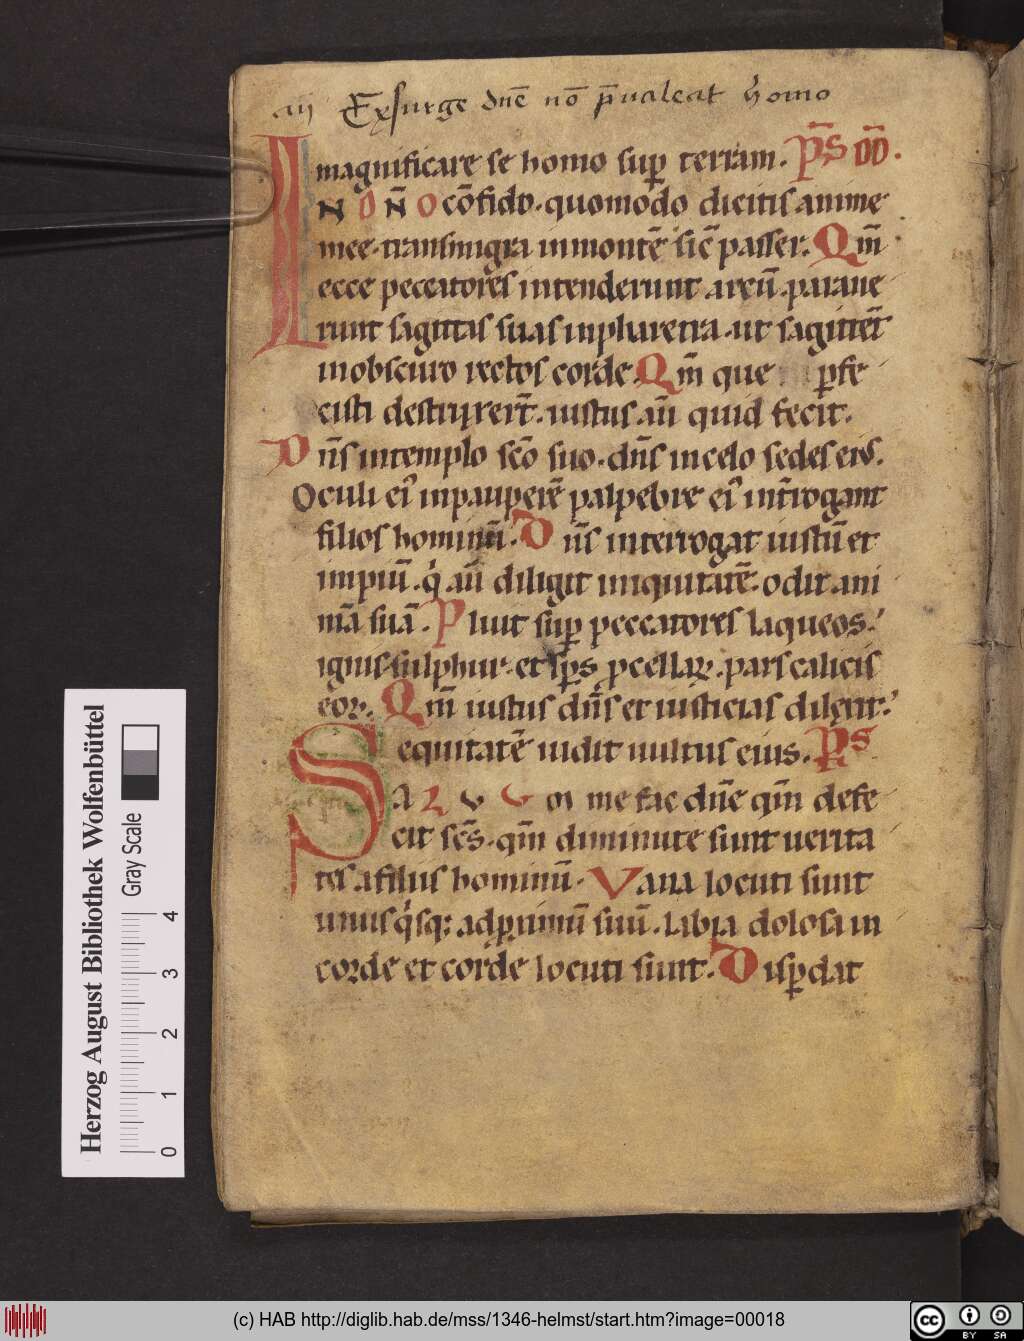 Exsurge dn̄e nō p̄ualeat homo
magnificare se homo sup̱ terram. P̄S DD̄.
IN DN̄O cōfido. quomodo dicitis anime
mee. transmigra in montē sic̄ passer. Qm̄
ecce peccatores intenderunt arcū. paraue
runt sagittas suas in pharetra. ut sagittēt
in obscuro rectos corde. Qm̄ que p̱fe
cisti destruxer̄t. iustus aū quid fecit.
Dn̄s in templo scō suo. dn̄s in celo sedes eiꝰ.
Oculi eiꝰ in pauperē palpebre eiꝰ int̄rogant
filios hominū. Dn̄s interrogat iustū et
impiū. q̇ aū diligit iniquitatē. odit ani
mā suā. Pluit sup̱ peccatores laqueos.
ignis. sulphur. et sp̄s p̱cellaꝝ. pars calicis
eoꝝ. Qm̄ iustus dn̄s et iusticias dilexit.
equitatē uidit uultus eius. P̄s
SALVVM me fac dn̄e qm̄ defe
cit sc̄s. qm̄ diminute sunt uerita
tes a filiis hominū. Vana locuti sunt
unusq̇sq; ad p̱ximū suū. labia dolosa in
corde et corde locuti sunt. Disp̱dat
Herzog August Bibliothek Wolfenbüttel
Gray Scale
0 1 2 3 4
(c) HAB http://diglib.hab.de/mss/1346-helmst/start.htm?image=00018
cc BY SA